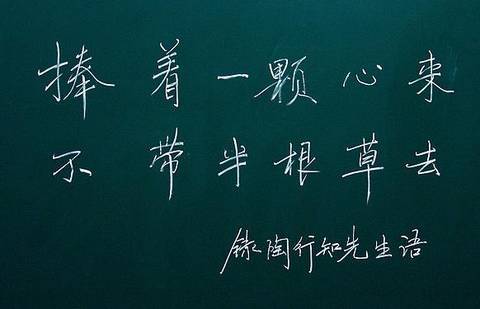 捧着一颗心来
不带半根草去
录陶行知先生语